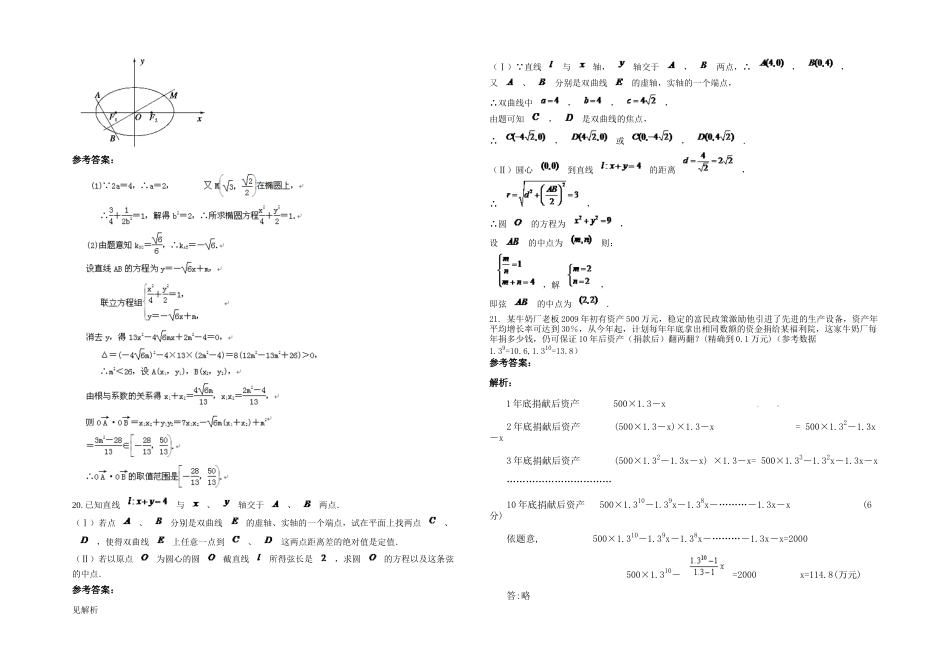 y
A
M
F₁ O F₂ x
B
参考答案：
(1)∵2a=4,∴a=2, 又 M(√3, √2/2)在椭圆上,
∴3/4+1/2b²=1, 解得 b²=2, ∴所求椭圆方程x²/4+y²/2=1.
(2)由题意知 k =√6/6, ∴k =-√6.
设直线 AB 的方程为 y=-√6x+m,
联立方程组{x²/4+y²/2=1,
y=-√6x+m,
消去 y, 得 13x²-4√6mx+2m²-4=0,
Δ=(-4√6m)²-4×13×(2m²-4)=8(12m²-13m²+26)>0,
∴m²<26, 设 A(x₁, y₁), B(x₂, y₂),
由根与系数的关系得 x₁+x₂=4√6m/13, x₁x₂=2m²-4/13,
则 OA·OB=x₁x₂+y₁y₂=7x₁x₂-√6m(x₁+x₂)+m²
=3m²-28/13∈[-28/13, 50/13).
∴OA·OB的取值范围是[-28/13, 50/13).
20. 已知直线 l:x+y=4 与 x 、 y 轴交于 A 、 B 两点.
(Ⅰ)若点 A 、 B 分别是双曲线 E 的虚轴、实轴的一个端点,试在平面上找两点 C 、
D ,使得双曲线 E 上任意一点到 C 、 D 这两点距离差的绝对值是定值.
(Ⅱ)若以原点 O 为圆心的圆 O 截直线 l 所得弦长是 2 ,求圆 O 的方程以及这条弦
的中点.
参考答案：
见解析
(Ⅰ)∵直线 l 与 x 轴, y 轴交于 A , B 两点,∴ A(4,0) , B(0,4) ,
又 A 、 B 分别是双曲线 E 的虚轴,实轴的一个端点,
∴双曲线中 a=4 , b=4 , c=4√2 ,
由题可知 C , D 是双曲线的焦点,
∴ C(-4√2,0) , D(4√2,0) 或 C(0,-4√2) , D(0,4√2) .
(Ⅱ)圆心 (0,0) 到直线 l:x+y=4 的距离 d=4/√2=2√2 ,
∴ r=√(d²+(AB/2)²)=3 ,
∴圆 O 的方程为 x²+y²=9 ,
设 AB 的中点为 (m,n) 则:
{m/n=1
m+n=4 ,解 {m=2
n=2 ,
即弦 AB 的中点为 (2,2) .
21. 某牛奶厂老板 2009 年初有资产 500 万元，稳定的富民政策激励他引进了先进的生产设备，资产年
平均增长率可达到 30％，从今年起，计划每年年底拿出相同数额的资金捐给某福利院，这家牛奶厂每
年捐多少钱，仍可保证 10 年后资产（捐款后）翻两翻？(精确到 0.1 万元)（参考数据
1.3⁹=10.6,1.3¹⁰=13.8）
参考答案：
解析：
1 年底捐献后资产 500×1.3－x
2 年底捐献后资产 (500×1.3－x)×1.3－x = 500×1.3²－1.3x
－x
3 年底捐献后资产 (500×1.3²－1.3x－x) ×1.3－x= 500×1.3³－1.3²x－1.3x－x
……………………………
10 年底捐献后资产 500×1.3¹⁰－1.3⁹x－1.3⁸x－………－1.3x－x (6
分)
依题意, 500×1.3¹⁰－1.3⁹x－1.3⁸x－………－1.3x－x=2000
500×1.3¹⁰－ 1.3¹⁰－1/1.3－1 x =2000 x=114.8(万元)
答:略